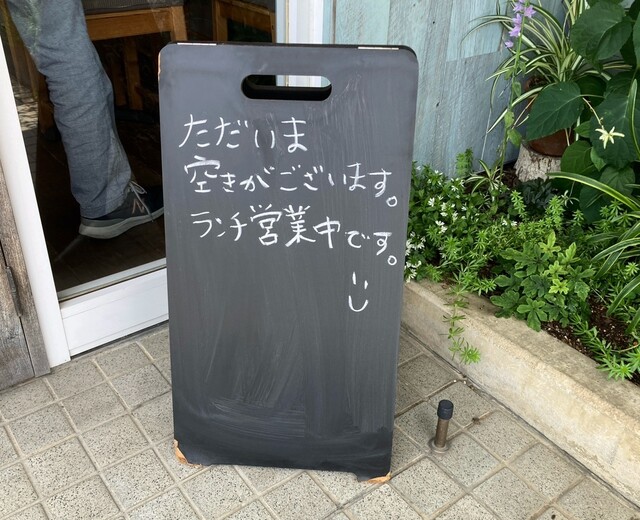 ただいま
空きがございます。
ランチ営業中です。